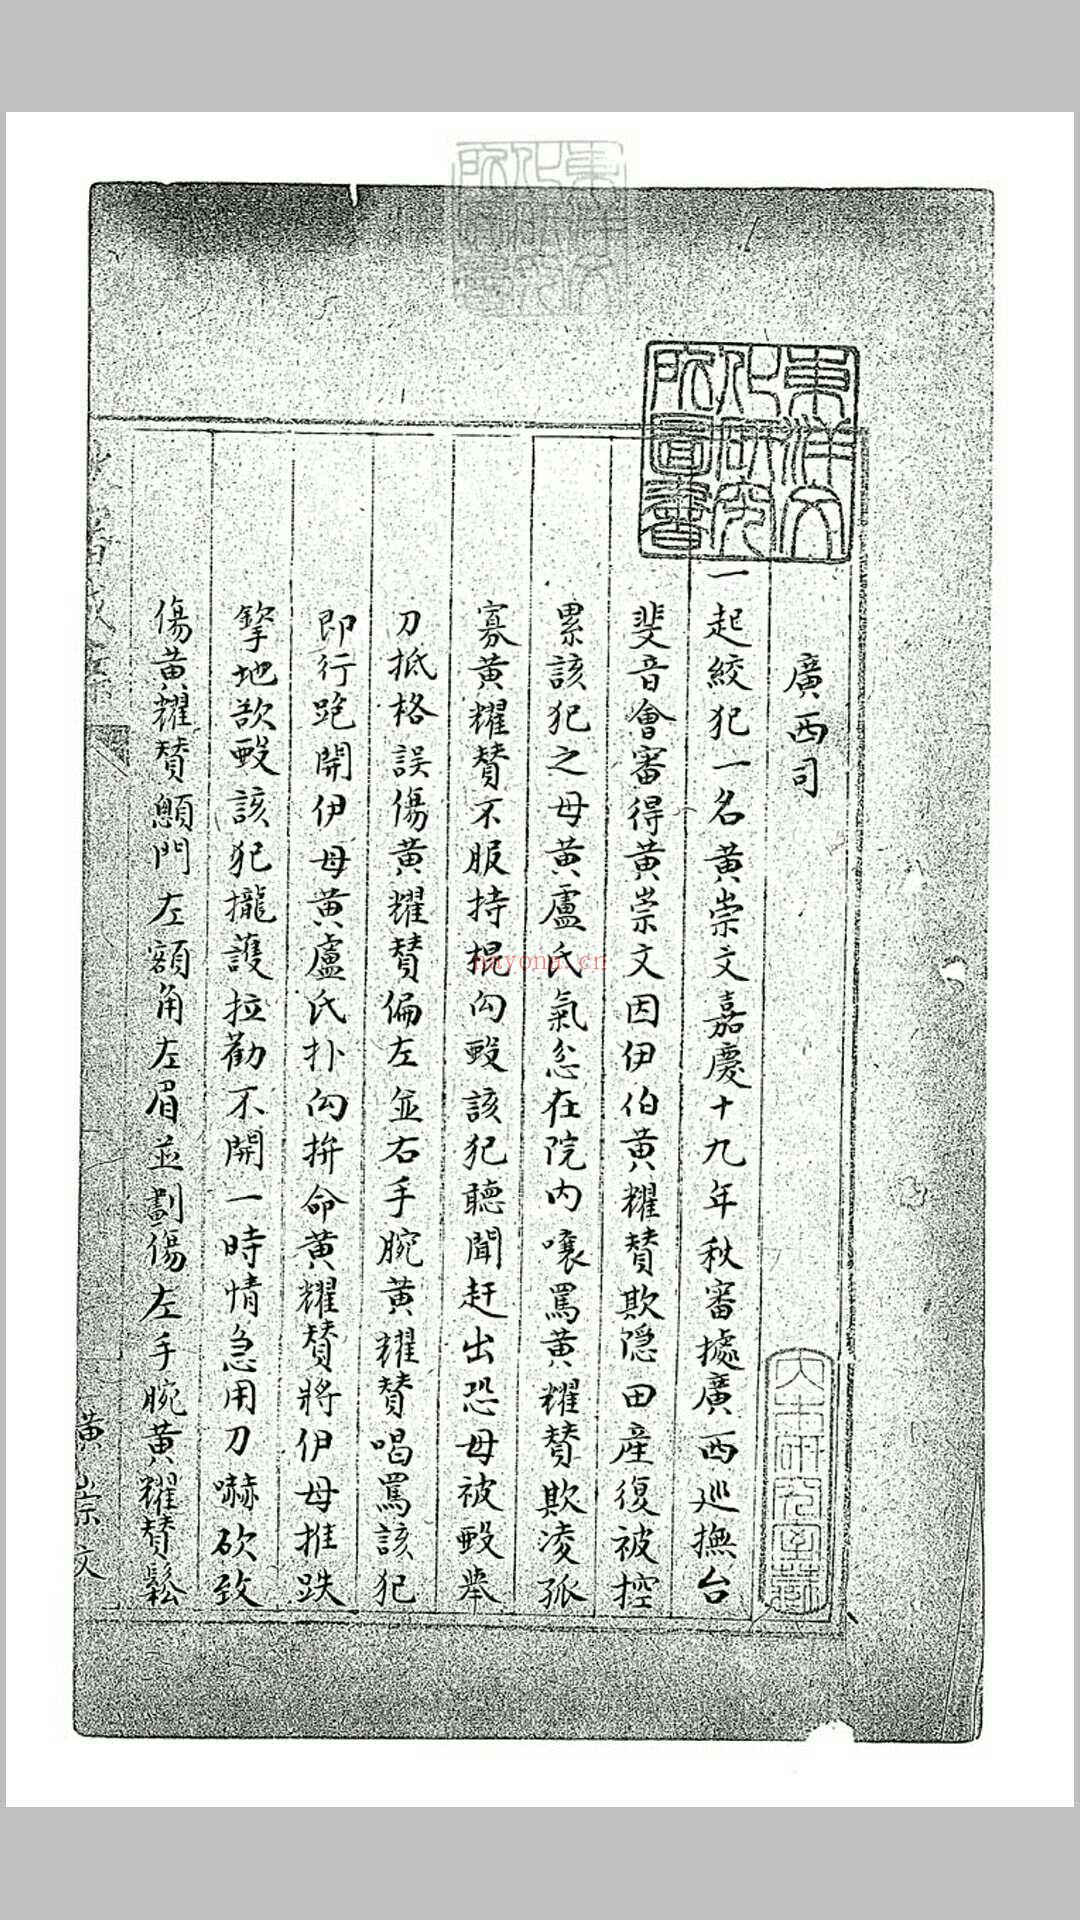 東洋文
化研究
院圖書
廣西司
一起絞犯一名黃崇文嘉慶十九年秋審據廣西巡撫台
斐音會審得黃崇文因伊伯黃耀贊欺隱田產復被控
累該犯之母黃盧氏氣忿在院內嚷罵黃耀贊欺凌孤
寡黃耀贊不服持棍向毆該犯聽聞赶出恐母被毆舉
刀抵格誤傷黃耀贊偏左並右手腕黃耀贊喝罵該犯
即行跑開伊母黃盧氏扑向拚命黃耀贊將伊母推跌
拏地欲毆該犯攏護拉勸不開一時情急用刀嚇砍致
傷黃耀贊顖門左額角左眉並劃傷左手腕黃耀贊鬆
黃崇文
hayona.cn